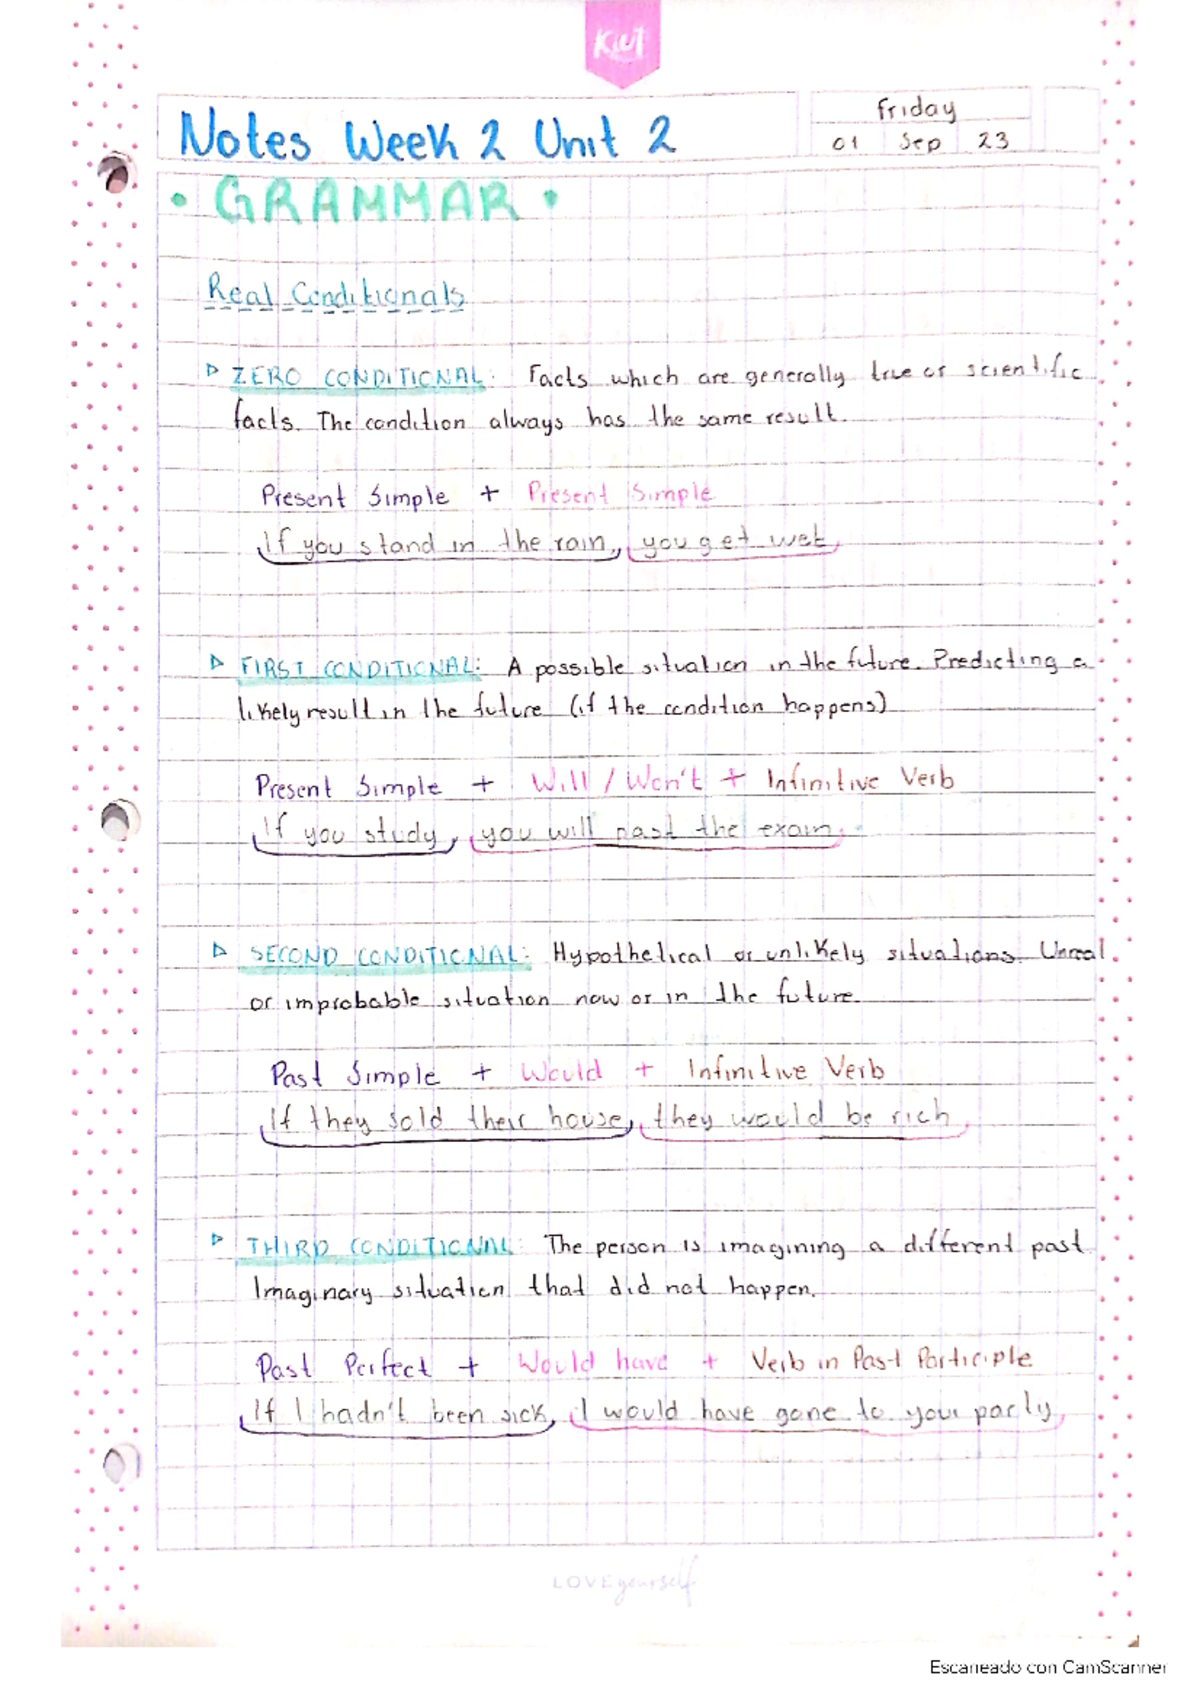 Kiut
Notes Week 2 Unit 2
friday
01 Sep 23
• GRAMMAR •
Real Conditionals
ZERO CONDITIONAL: Facts which are generally true or scientific
facts. The condition always has the same result.
Present Simple + Present Simple
If you stand in the rain, you get wet
FIRST CONDITIONAL: A possible situation in the future. Predicting a
likely result in the future (if the condition happens)
Present Simple + Will / Won't + Infinitive Verb
If you study, you will past the exam
SECOND CONDITIONAL: Hypothetical or unlikely situations. Unreal
or improbable situation now or in the future.
Past Simple + Would + Infinitive Verb
If they sold their house, they would be rich
THIRD CONDITIONAL: The person is imagining a different past
Imaginary situation that did not happen.
Past Perfect + Would have + Verb in Past Participle
If I hadn't been sick, I would have gone to your party
LOVE yourself
Escaneado con CamScanner